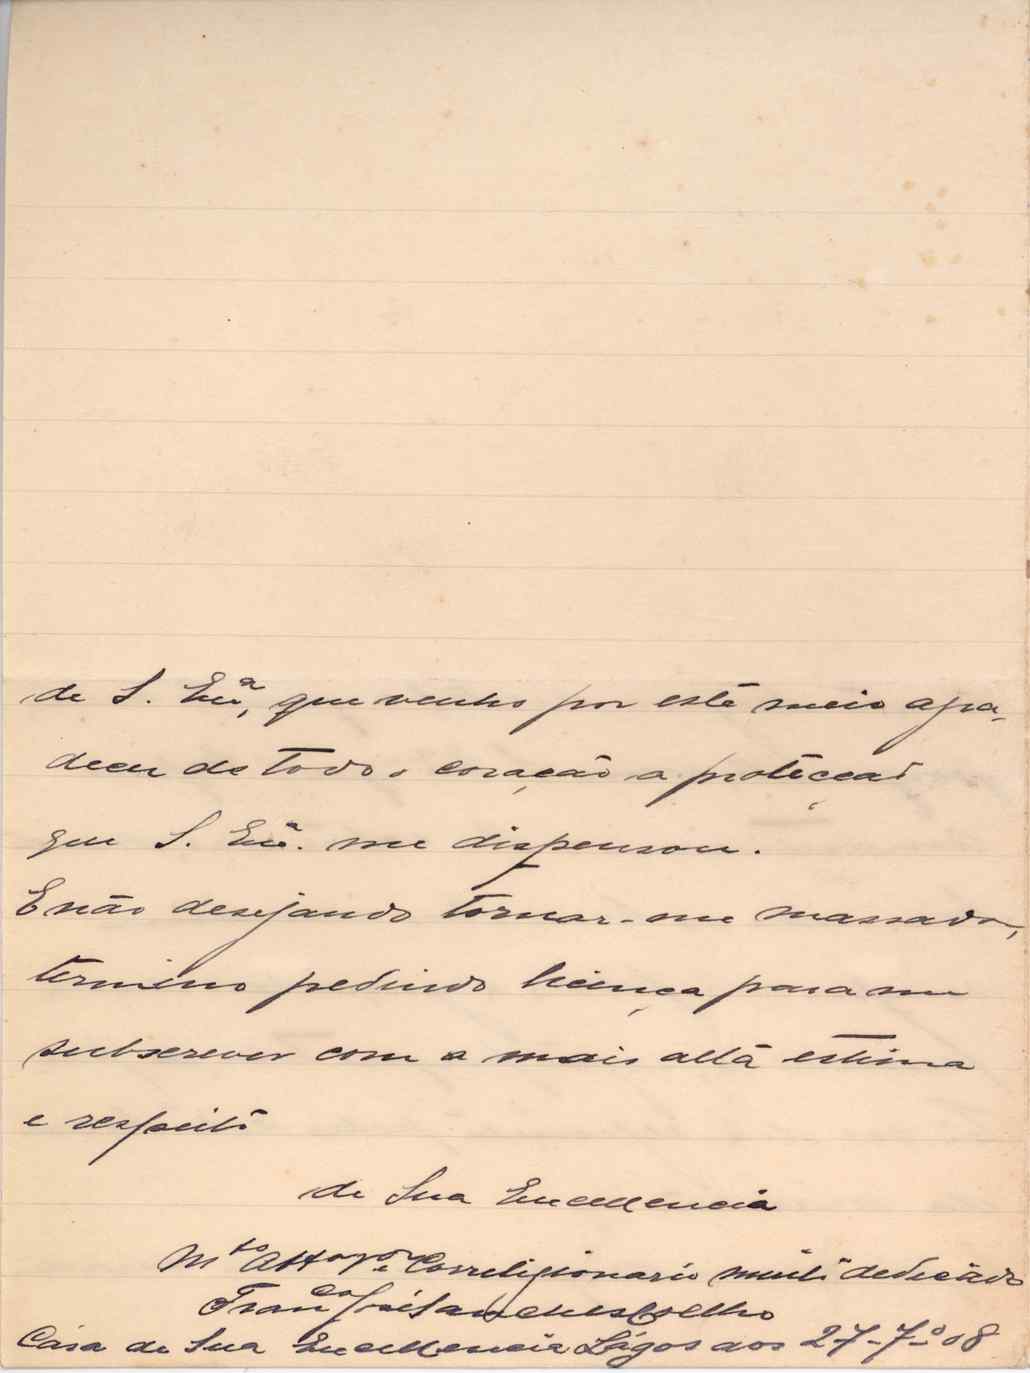 de S. Exª, que venho por este meio agra-
decer de todo o coração a protecção
que S. Exª. me dispensou.
E não desejando tornar-me massador,
termino pedindo licença para me
subscrever com a mais alta estima
e respeito
de Sua Excellencia
Mto Attº Vor e Correligionario muito dedicado
Franco José Sanches Coelho
Cása de Sua Excellencia Lágos aos 27-7-º08